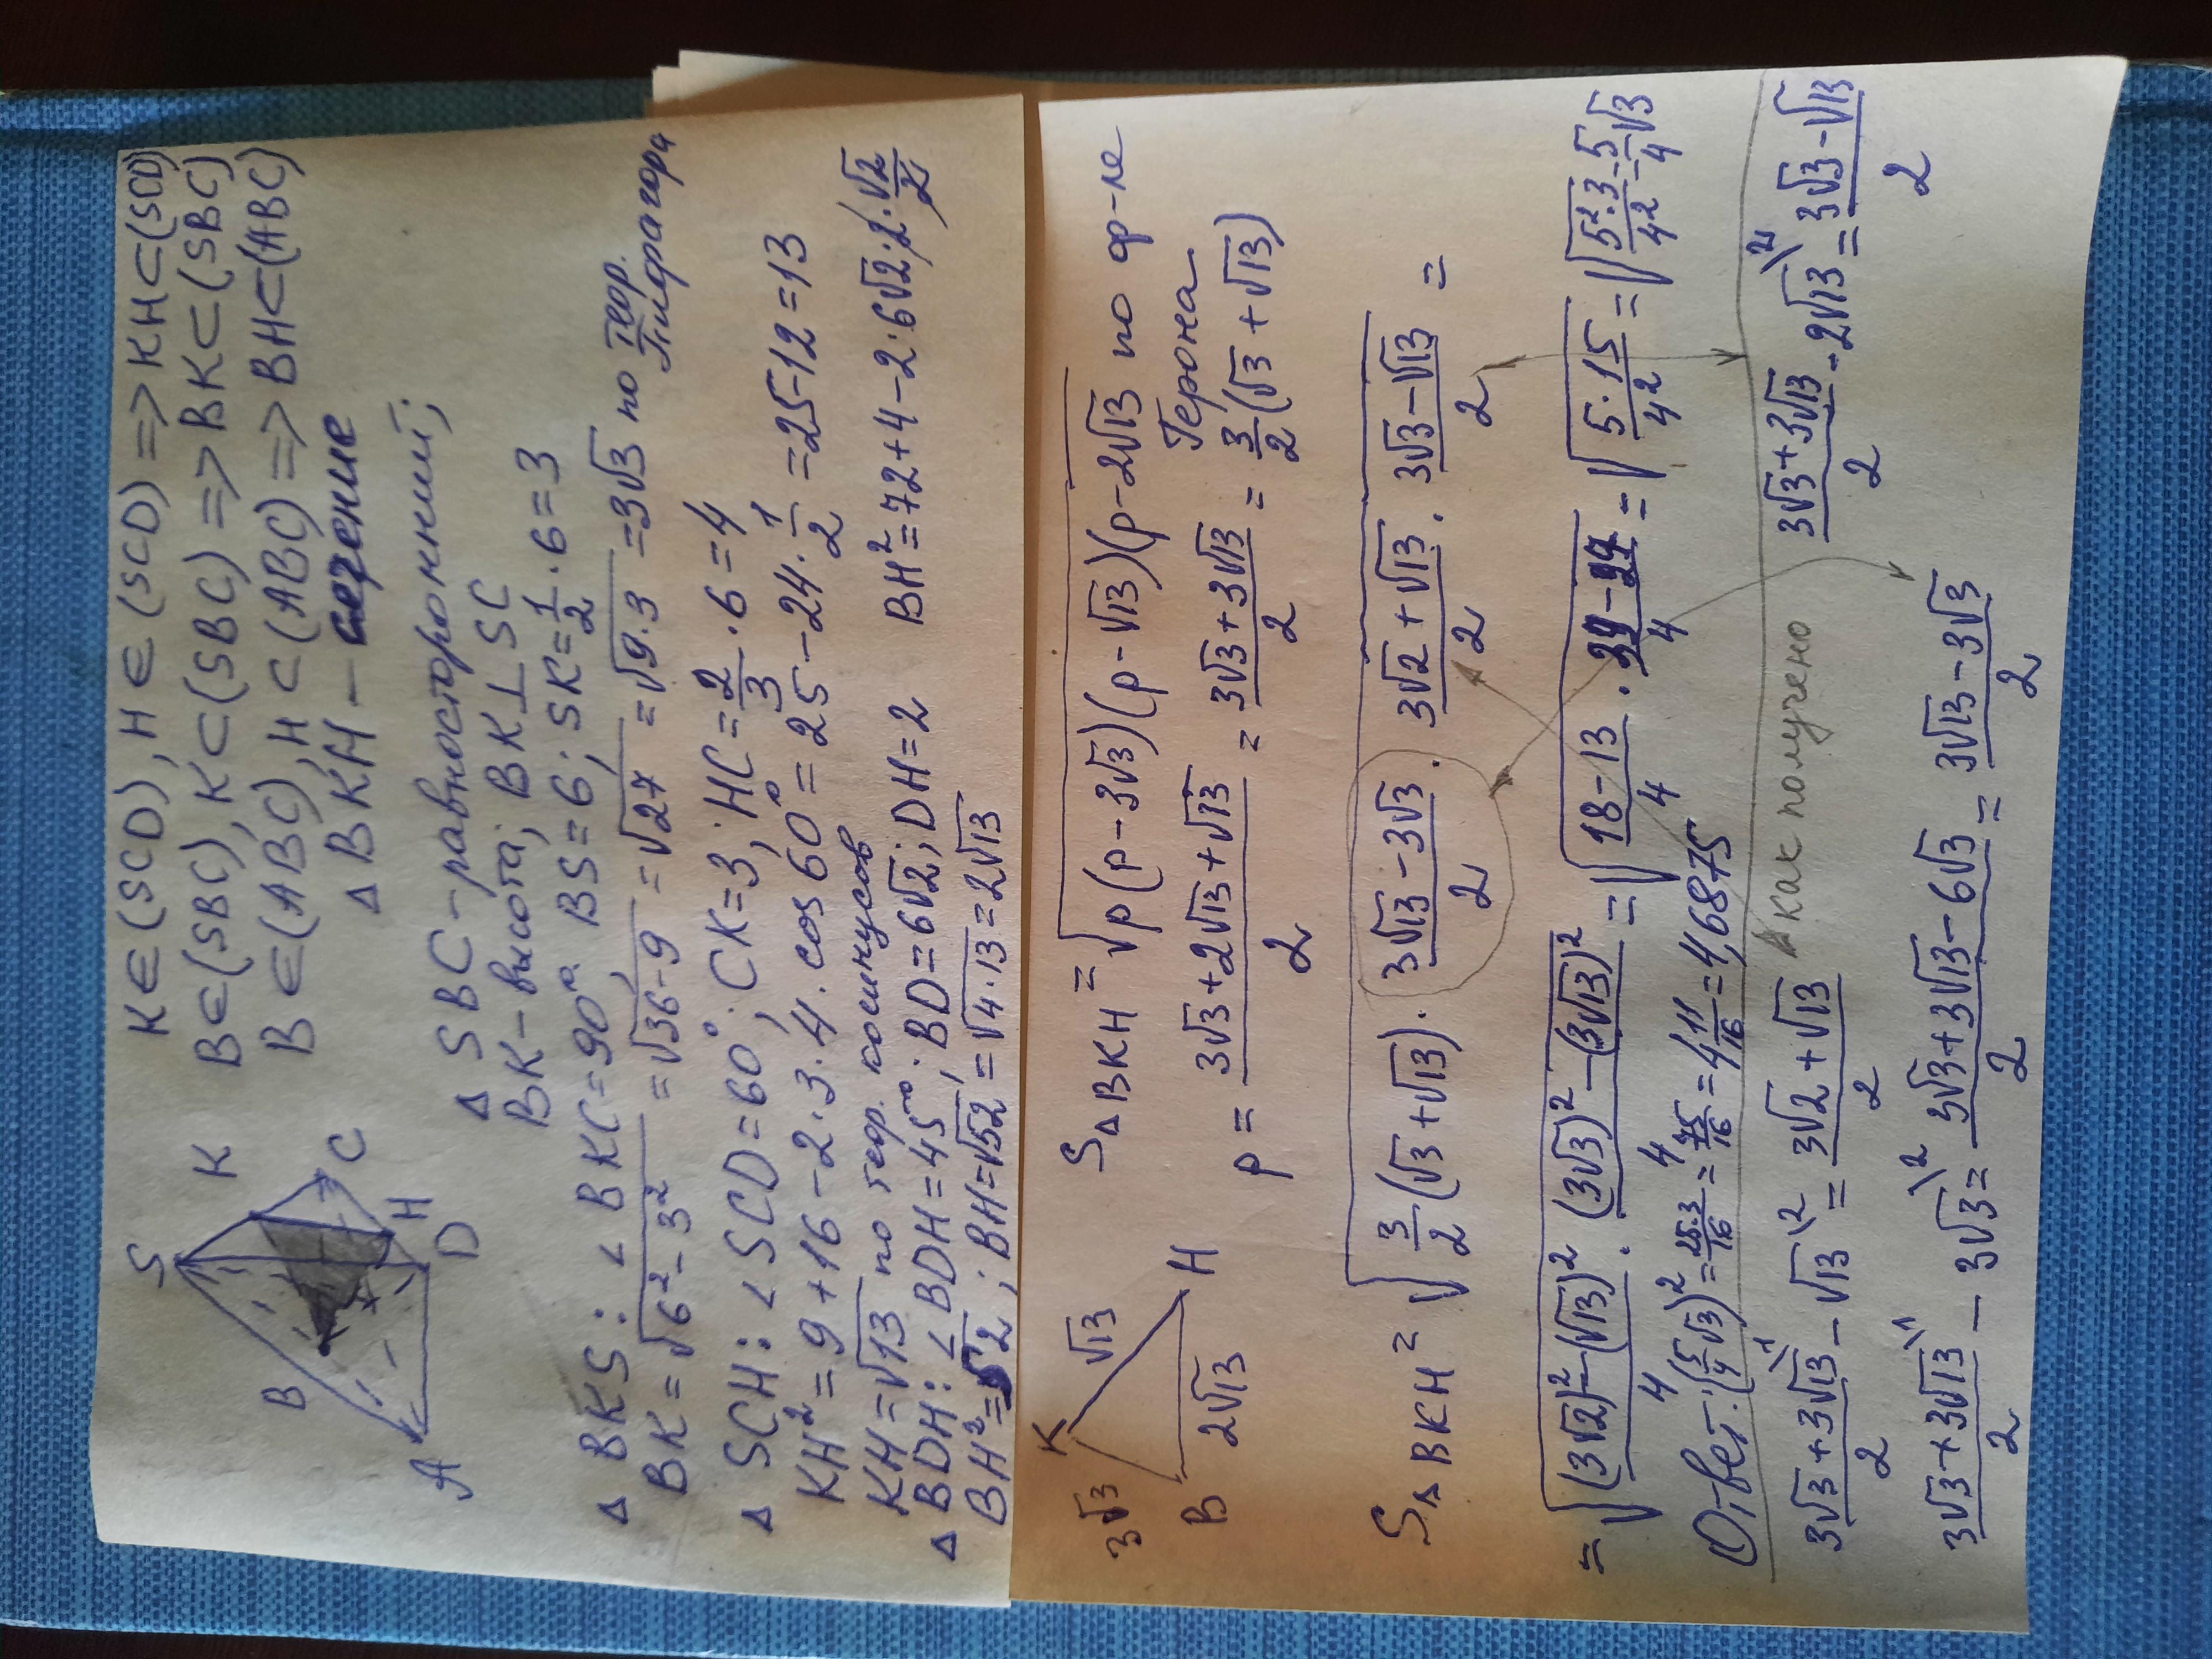 S
K
B
C
H
A
D
K ∈ (SCD), H ∈ (SCD) => KH ⊂ (SCD)
B ∈ (SBC), K ⊂ (SBC) => BK ⊂ (SBC)
B ∈ (ABC), H ⊂ (ABC) => BH ⊂ (ABC)
△ BKH – сечение
△ SBC – равносторонний;
BK – высота; BK ⊥ SC
△ BKS: ∠ BKC = 90°. BS = 6; SK = 1/2 · 6 = 3
BK = √(6² - 3²) = √(36 - 9) = √27 = √(9·3) = 3√3 по теор. Пифагора
△ SCH: ∠ SCD = 60°; CK = 3; HC = 2/3 · 6 = 4
KH² = 9 + 16 - 2 · 3 · 4 · cos 60° = 25 - 24 · 1/2 = 25 - 12 = 13
KH = √13 по теор. косинусов
△ BDH: ∠ BDH = 45°; BD = 6√2; DH = 2 BH² = 72 + 4 - 2 · 6√2 · 2 · √2/2
BH² = 52; BH = √52 = √(4·13) = 2√13
K
3√3
√13
B
2√13
H
S△BKH = √(p(p - 3√3)(p - √13)(p - 2√13)) по ф-ле Герона
p = (3√3 + 2√13 + √13)/2 = (3√3 + 3√13)/2 = 3/2 (√3 + √13)
S△BKH = √(3/2 (√3 + √13) · (3√13 - 3√3)/2 · (3√2 + √13)/2 · (3√3 - √13)/2) =
= √(((3√2)² - (√13)²)/4 · ((3√3)² - (3√13)²)/4) = √((18 - 13)/4 · (39 - 24)/4) = √((5 · 15)/4²) = √((5² · 3)/4²) = 5/4 √3
Ответ: (5/4 √3)² = (25·3)/16 = 75/16 = 4 11/16 = 4,6875
(3√3 + 3√13)/2 - √13 = (3√2 + √13)/2 как получено (3√3 + 3√13)/2 - 2√13 = (3√3 - √13)/2
(3√3 + 3√13)/2 - 3√3 = (3√3 + 3√13 - 6√3)/2 = (3√13 - 3√3)/2